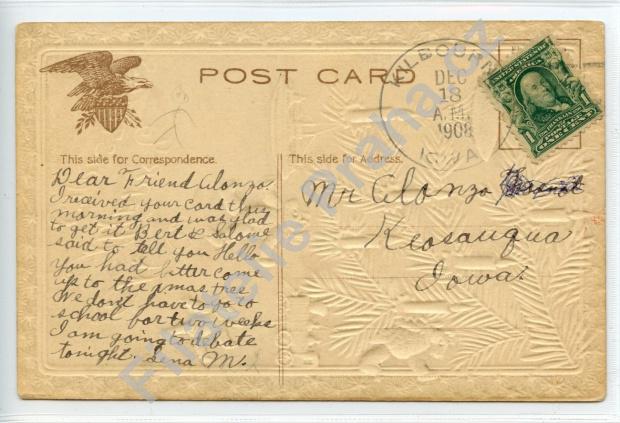 POST CARD
KILBOURN
DEC
18
A.M.
1908
IOWA
This side for Correspondence.
This side for Address.
Dear Friend Alonzo.
I received your card this
morning and was glad
to get it Bert & Salome
said to tell you Hello
You had better come
up to the xmas tree
We don't have to go to
school for two weeks
I am going to debate
tonight. Lena M.
Mr Alonzo
Keosauqua
Iowa.
Filatelie Praha.cz